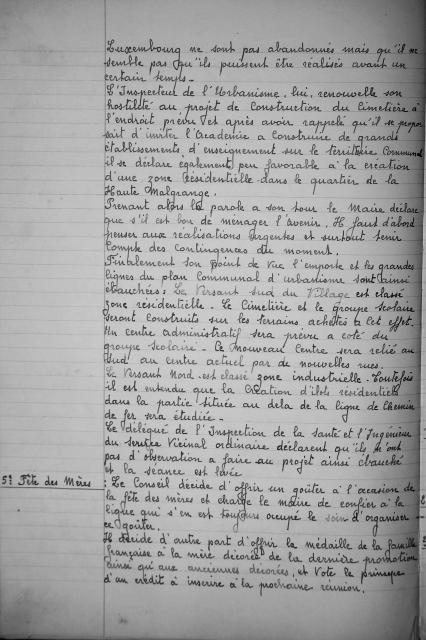 Luxembourg ne sont pas abandonnés mais qu'il ne
semble pas qu'ils puissent être réalisés avant un
certain temps.
L'Inspecteur de l'Urbanisme, lui, renouvelle son
hostilité au projet de construction du Cimetière à
l'endroit prévu et après avoir rappelé qu'il se propo
sait d'inviter l'Académie a Construire de grands
établissements d'enseignement sur le territoire Communal
il se déclare également peu favorable à la création
d'une zone Résidentielle dans le quartier de la
Haute Malgrange.
Prenant alors la parole a son tour le Maire déclare
que s'il est bon de ménager l'avenir, Il faut d'abord
penser aux réalisations urgentes et surtout tenir
Compte des Contingences du moment.
Finalement son point de vue l'emporte et les grandes
lignes du plan Communal d'urbanisme sont ainsi
ébauchées : Le Versant Sud du Village est classé
zone résidentielle. Le Cimetière et le groupe scolaire
seront Construits sur les terrains achetés a Cet effet.
Un centre administratif sera prévu a coté du
groupe scolaire - Ce nouveau Centre sera relié au
Sud au centre actuel par de nouvelles rues.
Le Versant Nord est classé zone industrielle. Toutefois
il est entendu que la Création d'ilots résidentiels
dans la partie située au dela de la ligne de Chemin
de fer sera étudiée.
Le délégué de l'Inspection de la Santé et l'Ingénieur
du service Vicinal ordinaire déclarent qu'ils n'ont
pas d'observation a faire au projet ainsi ébauché
et la séance est levée
5° Fête des Mères : Le Conseil décide d'offrir un goûter à l'occasion de
la fête des mères et charge le maire de confier à la
ligue qui s'en est toujours occupé le soin d'organiser
ce goûter.
Il décide d'autre part d'offrir la médaille de la famille
française à la mère décorée de la dernière promotion
ainsi qu'aux anciennes décorées, et Vote le principe
d'un crédit à inscrire à la prochaine réunion.